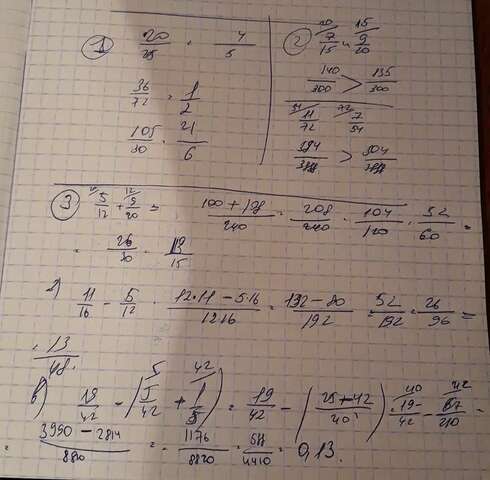 ① 20/25 = 4/5
36/72 = 1/2
105/30 = 21/6
② 20/ 7/15 и 15/ 9/20
140/300 > 135/300
11/72 7/54
594/3888 > 504/3888
③ 5/12 + 12/ 9/20 = 100+108/240 = 208/240 = 104/120 = 52/60 =
= 26/30 = 13/15
11/16 - 5/12 = 12·11-5·16/12·16 = 132-80/192 = 52/192 = 26/96 =
= 13/48.
в) 19/42 - ( 5/ 5/42 + 42/ 1/5 ) = 19/42 - ( 25+42/ ) = 19/42 - 67/210 =
= 3990-2814/8820 = 1176/8820 = /4410 = 0,13.